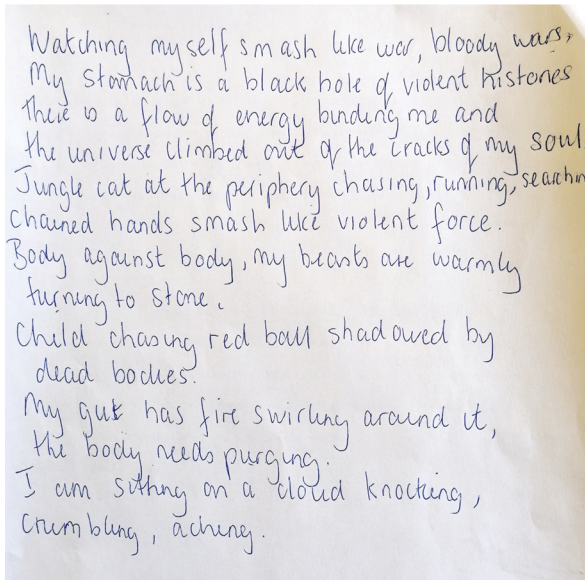 Watching myself smash like war, bloody wars,
My stomach is a black hole of violent histories
There is a flow of energy binding me and
the universe climbed out of the cracks of my soul
Jungle cat at the periphery chasing, running, searchin
Chained hands smash like violent force.
Body against body, my beasts are warmly
turning to stone.
Child chasing red ball shadowed by
dead bodies.
My gut has fire swirling around it,
the body needs purging.
I am sitting on a cloud knocking,
crumbling, aching.